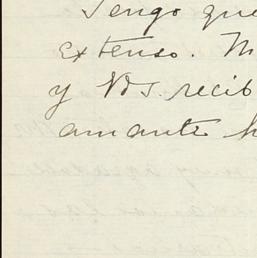 Tengo que
extenso. M
y Vds. recib
amante h